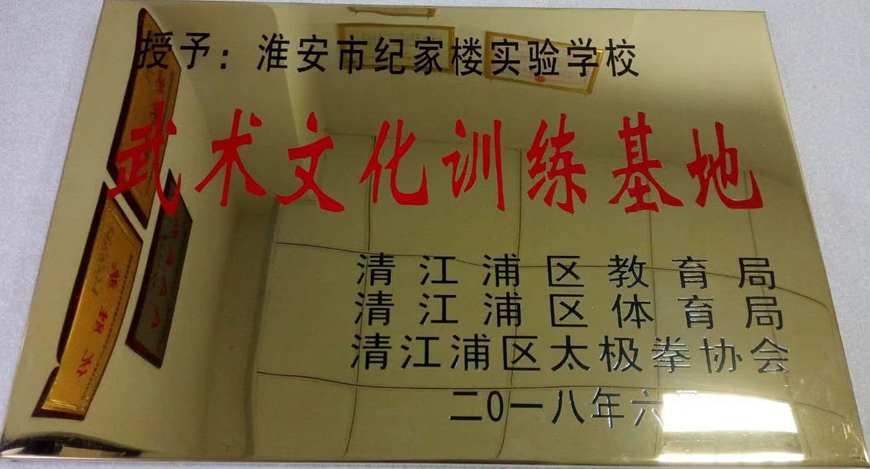 授予：淮安市纪家楼实验学校
武术文化训练基地
清江浦区教育局
清江浦区体育局
清江浦区太极拳协会
二0一八年六月